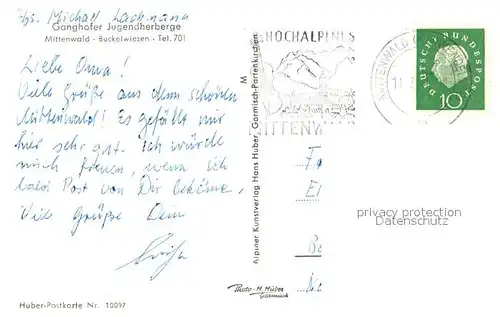 Michael Lachmann
Ganghofer Jugendherberge
Mittenwald - Buckelwiesen - Tel. 701
Liebe Oma!
Viele Grüße aus dem schönen
Mittenwald! Es gefällt mir
hier sehr gut. Ich würde
mich freuen, wenn ich
bald Post von Dir bekäme.
Viele Grüße Dein
Huber-Postkarte Nr. 10097
M
Alpiner Kunstverlag Hans Huber, Garmisch-Partenkirchen
HOCHALPINES
MITTENW
MITTENWALD
11
DEUTSCHE BUNDESPOST
10
privacy protection
Datenschutz
Photo-H. Huber
Garmisch